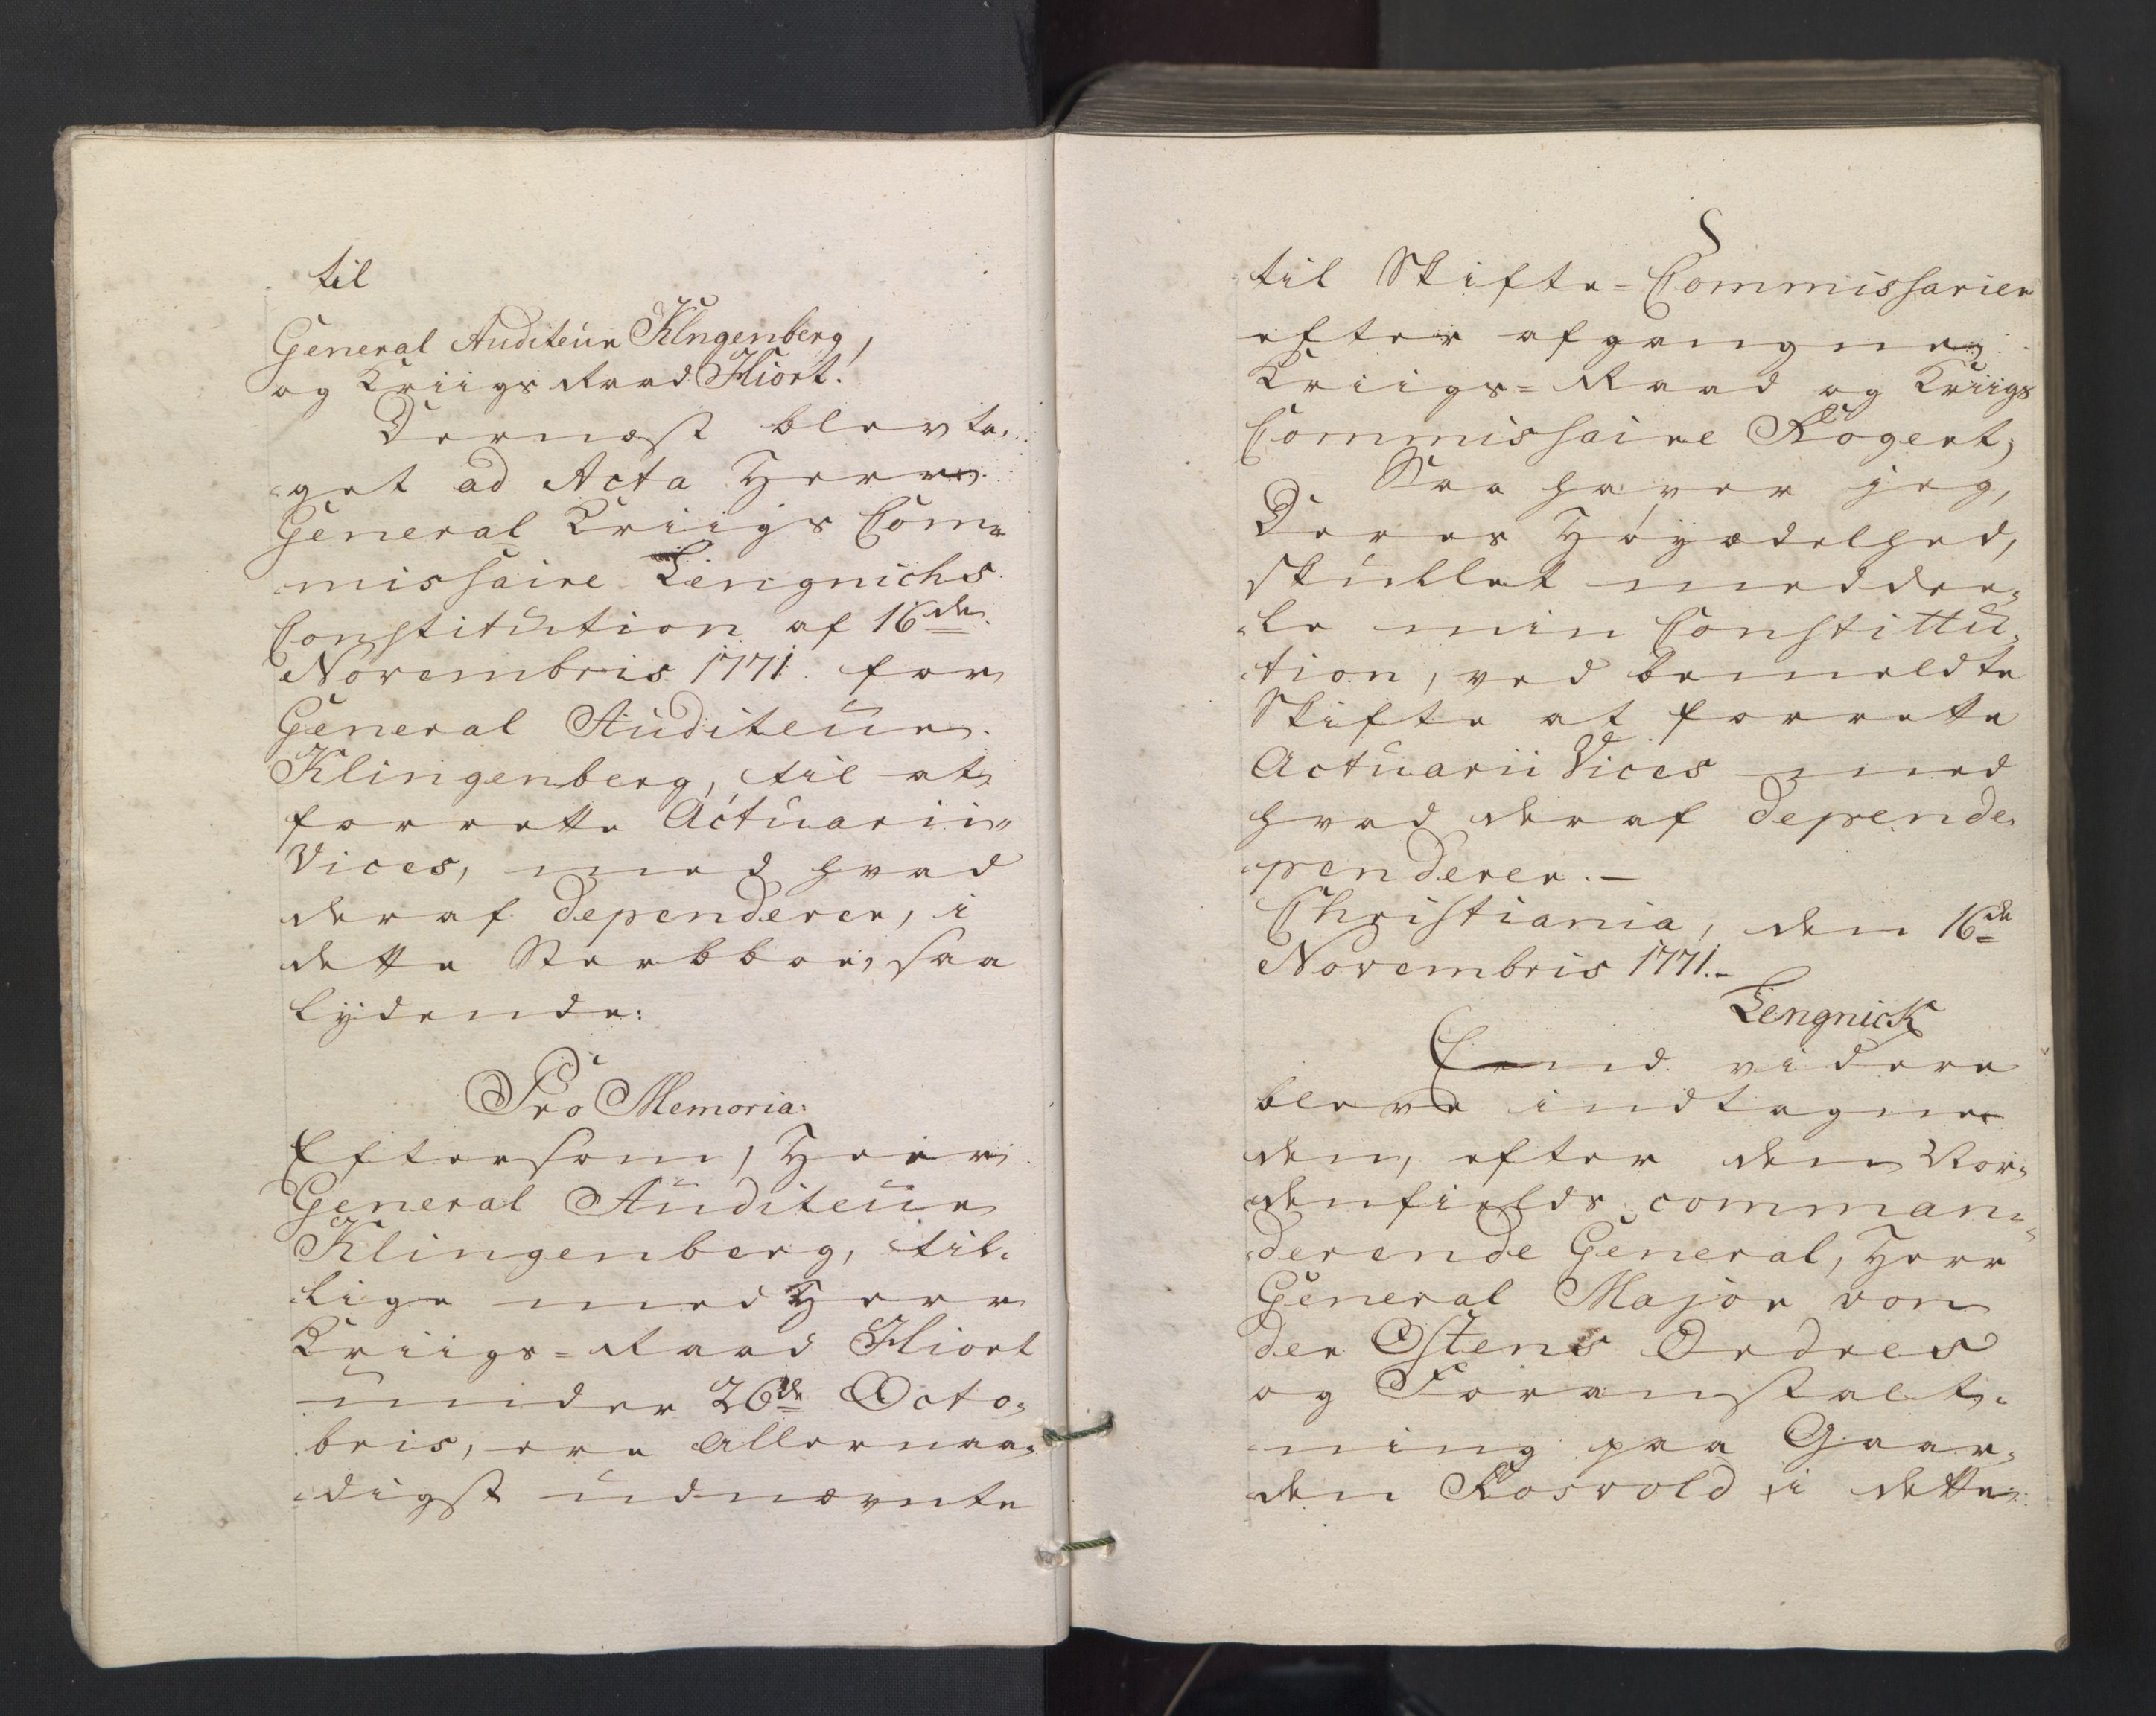 til
General Auditeur Klngenberg,
og Kriigs Raad Hiort.
Dernæst blev ta,
get ad Acta Herr
General Kriigs Com=
missaire Lengnichs
Constitution af 16de
Novembris 1771. for
General Auditeur
Klingenberg, til at
forrette Actuarii
Vices, med hvad
deraf dependerer, i
dette Sterbboe, saa
lÿdende:
Pro Memoria:
Eftersom, Herr
General Auditeur
Klingenberg, til=
lige med Herr
Kriigs=Raad Hiort
under 26de Octo=
bris, ere Allernaa=
digst udnævnte
5
til Skifte=Commissarier
efter afgangne
Kriigs=Raad og Kriigs
Commissaire Rogert;
Saa haver jeg,
Deres Höÿædelhed,
skullet meddee=
le min Constittu=
tion, ved bemeldte
Skifte at forrette
Actuarii Vices med
hvad deraf depende
penderer.—
Christiania, den 16de
Novembris 1771.—
Lengnick
End videre
bleve indtagne
den, efter den Nor=
denfields comman=
derende General, Herr
General Major von
der Ostens Ordres
og Foranstalt=
ning paa Gaar=
den Rosvold i dette